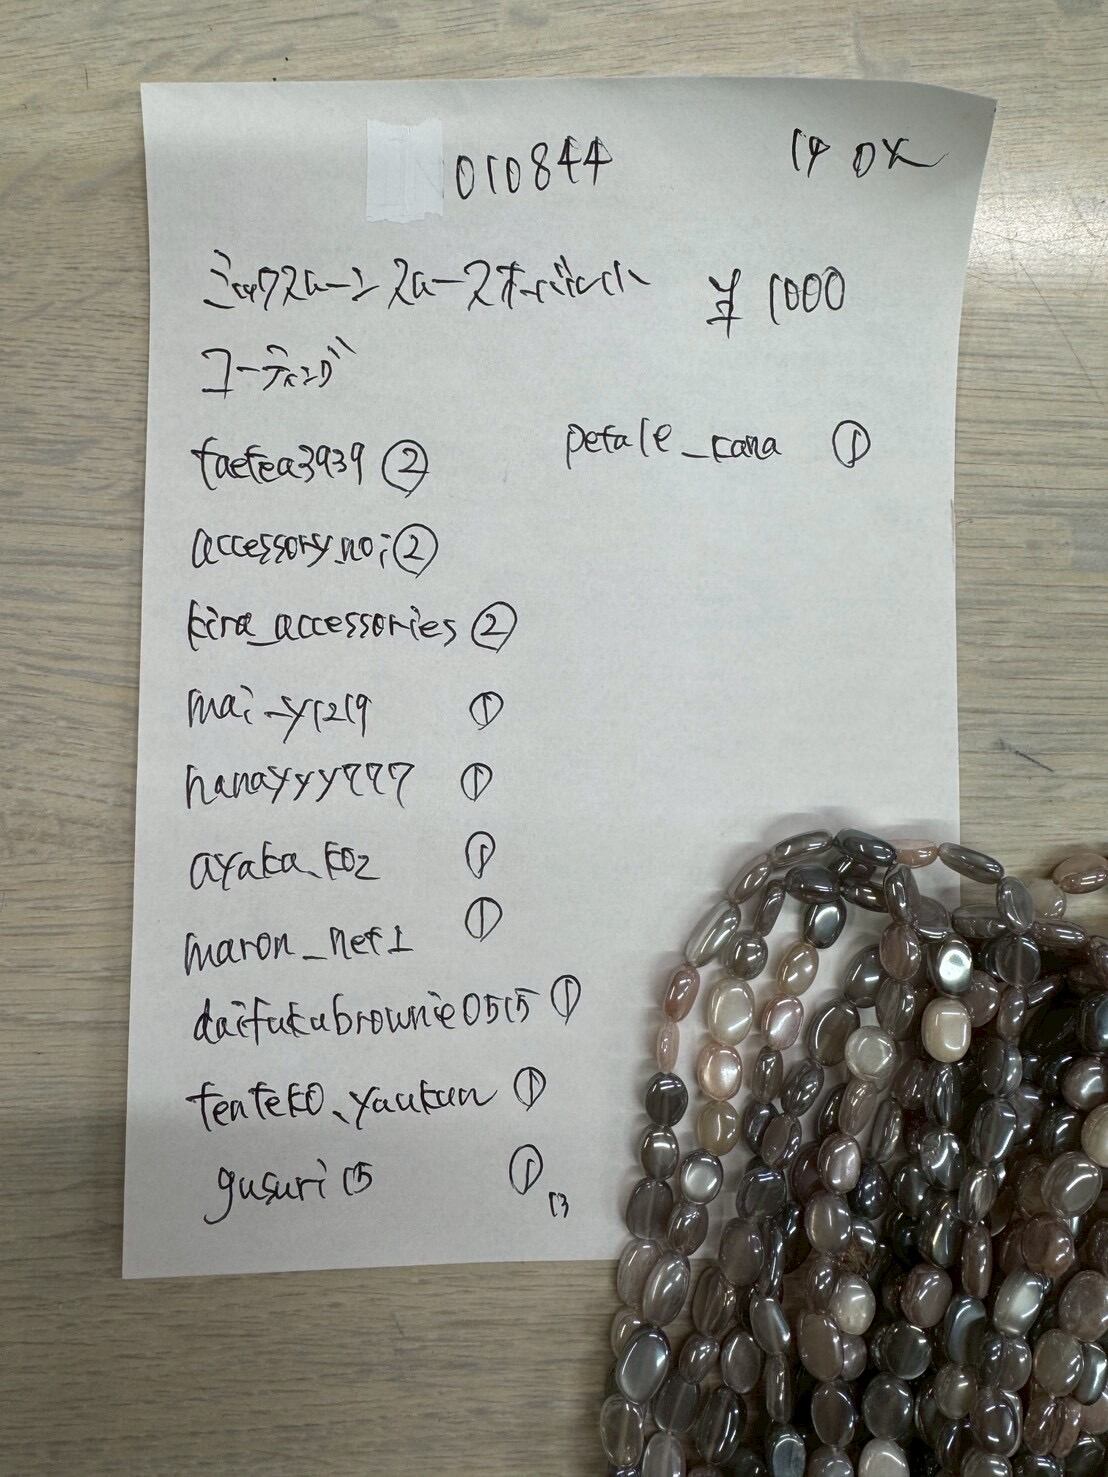 010844
14 OK
ミックスムーン スムースオーバル小 ¥1000
コーティング
taetea3939 ②
petale_kana ①
accessory_noi ②
kira_accessories ②
mai_y1219 ①
hanayyy777 ①
ayaka_k02 ①
maron_net1 ①
daifukubrownie0515 ①
tenteko_yaukun ①
gusuri15 ①
13